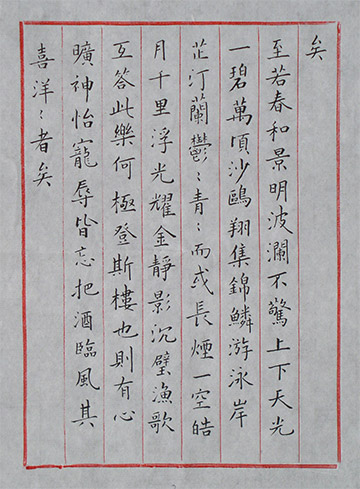 矣
至若春和景明波瀾不驚上下天光
一碧萬頃沙鷗翔集錦鱗游泳岸
芷汀蘭鬱〻青〻而或長煙一空皓
月千里浮光耀金靜影沉璧漁歌
互答此樂何極登斯樓也則有心
曠神怡寵辱皆忘把酒臨風其
喜洋〻者矣